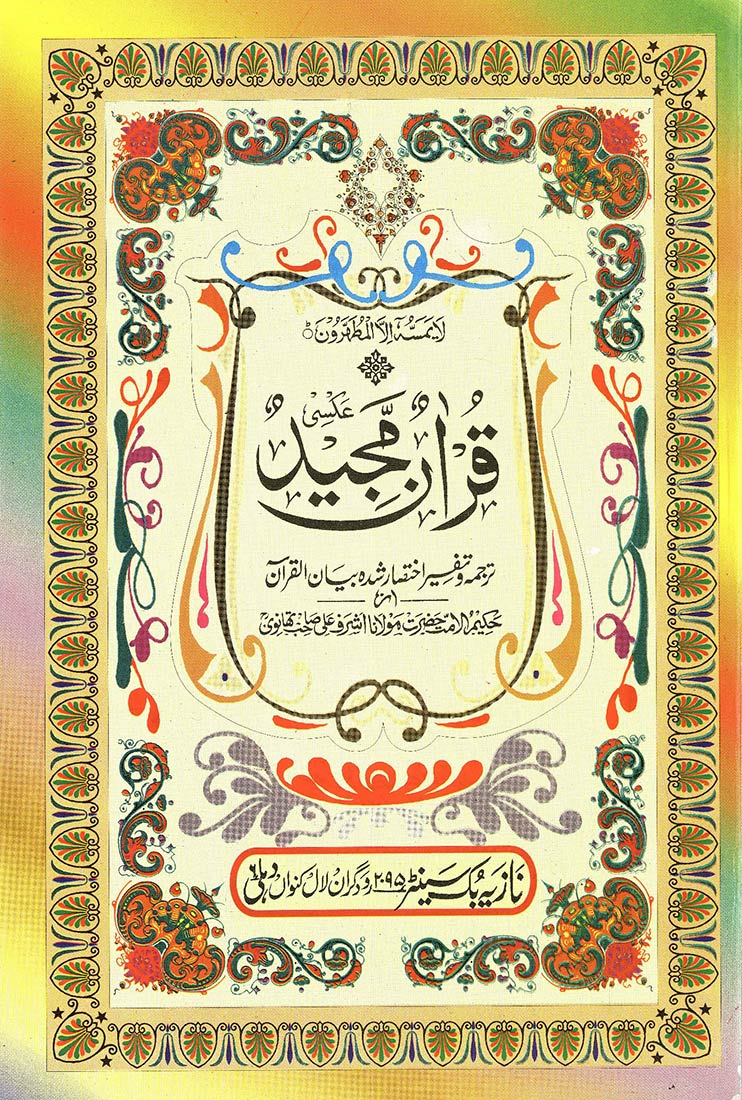 لَا يَمَسُّهٗٓ اِلَّا الْمُطَهَّرُوْنَ ؕ
عکسی
قُرْاٰنٌ مَّجِيْدٌ
ترجمہ و تفسیر اختصار شدہ بیان القرآن
از
حکیم الامت حضرت مولانا اشرف علی صاحب تھانوی
نازیہ بک سینٹر ۲۰۹۵ رودگران لال کنواں دہلی ۶